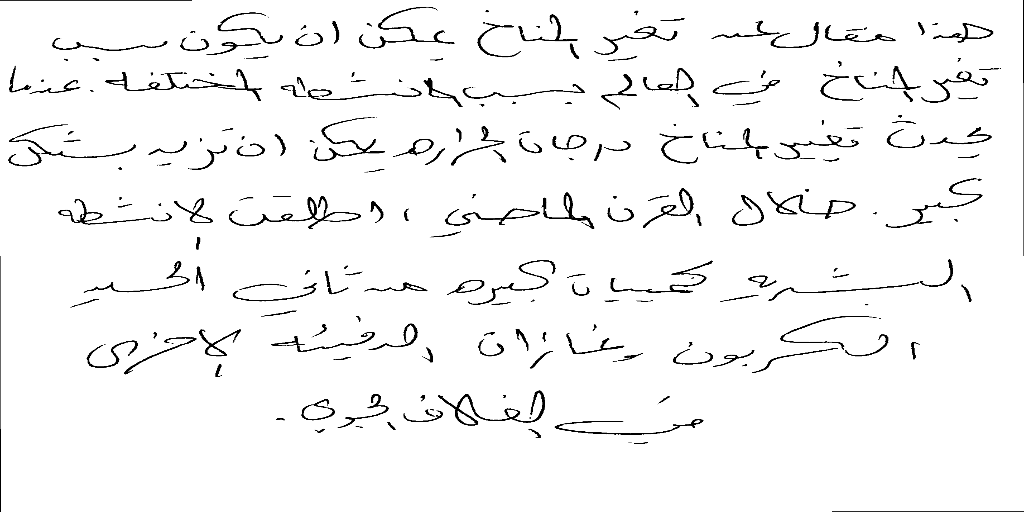 هذا مقال عن تغير المناخ يمكن ان يكون سبب
تغير المناخ في العالم بسبب الانشطه المختلفه. عندما
يحدث تغيير المناخ درجات الحراره يمكن ان تزيد بشكل
كبير. خلال القرن الماضي، اطلقت الانشطه
البشريه كميات كبيره من ثاني اكسيد
الكربون وغازات الدفيئه الاخرى
في الغلاف الجوي.